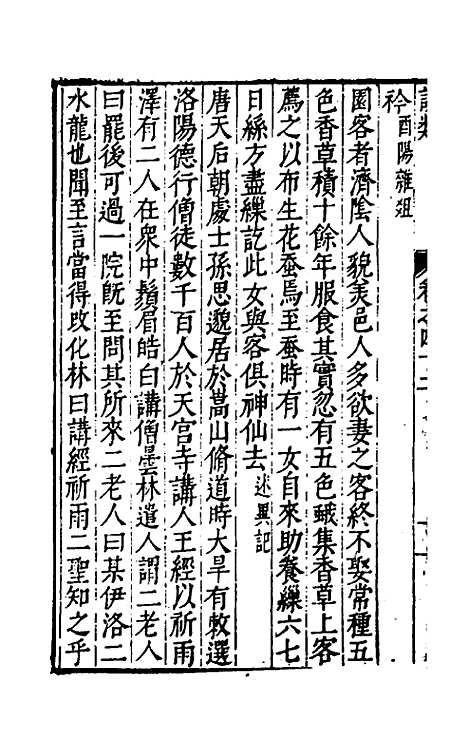 衿酉陽雜俎
園客者濟陰人貌美邑人多欲妻之客終不娶常種五
色香草積十餘年服食其實忽有五色蛾集香草上客
薦之以布生花蚕焉至蚕時有一女自來助養繅六七
日絲方盡繅訖此女與客俱神仙去述異記
唐天后朝處士孫思邈居於嵩山脩道時大旱有敕選
洛陽德行僧徒數千百人於天宮寺講人王經以祈雨
澤有二人在衆中鬚眉皓白講僧曇林遣人謂二老人
曰罷後可過一院旣至問其所來二老人曰某伊洛二
水龍也聞至言當得改化林曰講經祈雨二聖知之乎